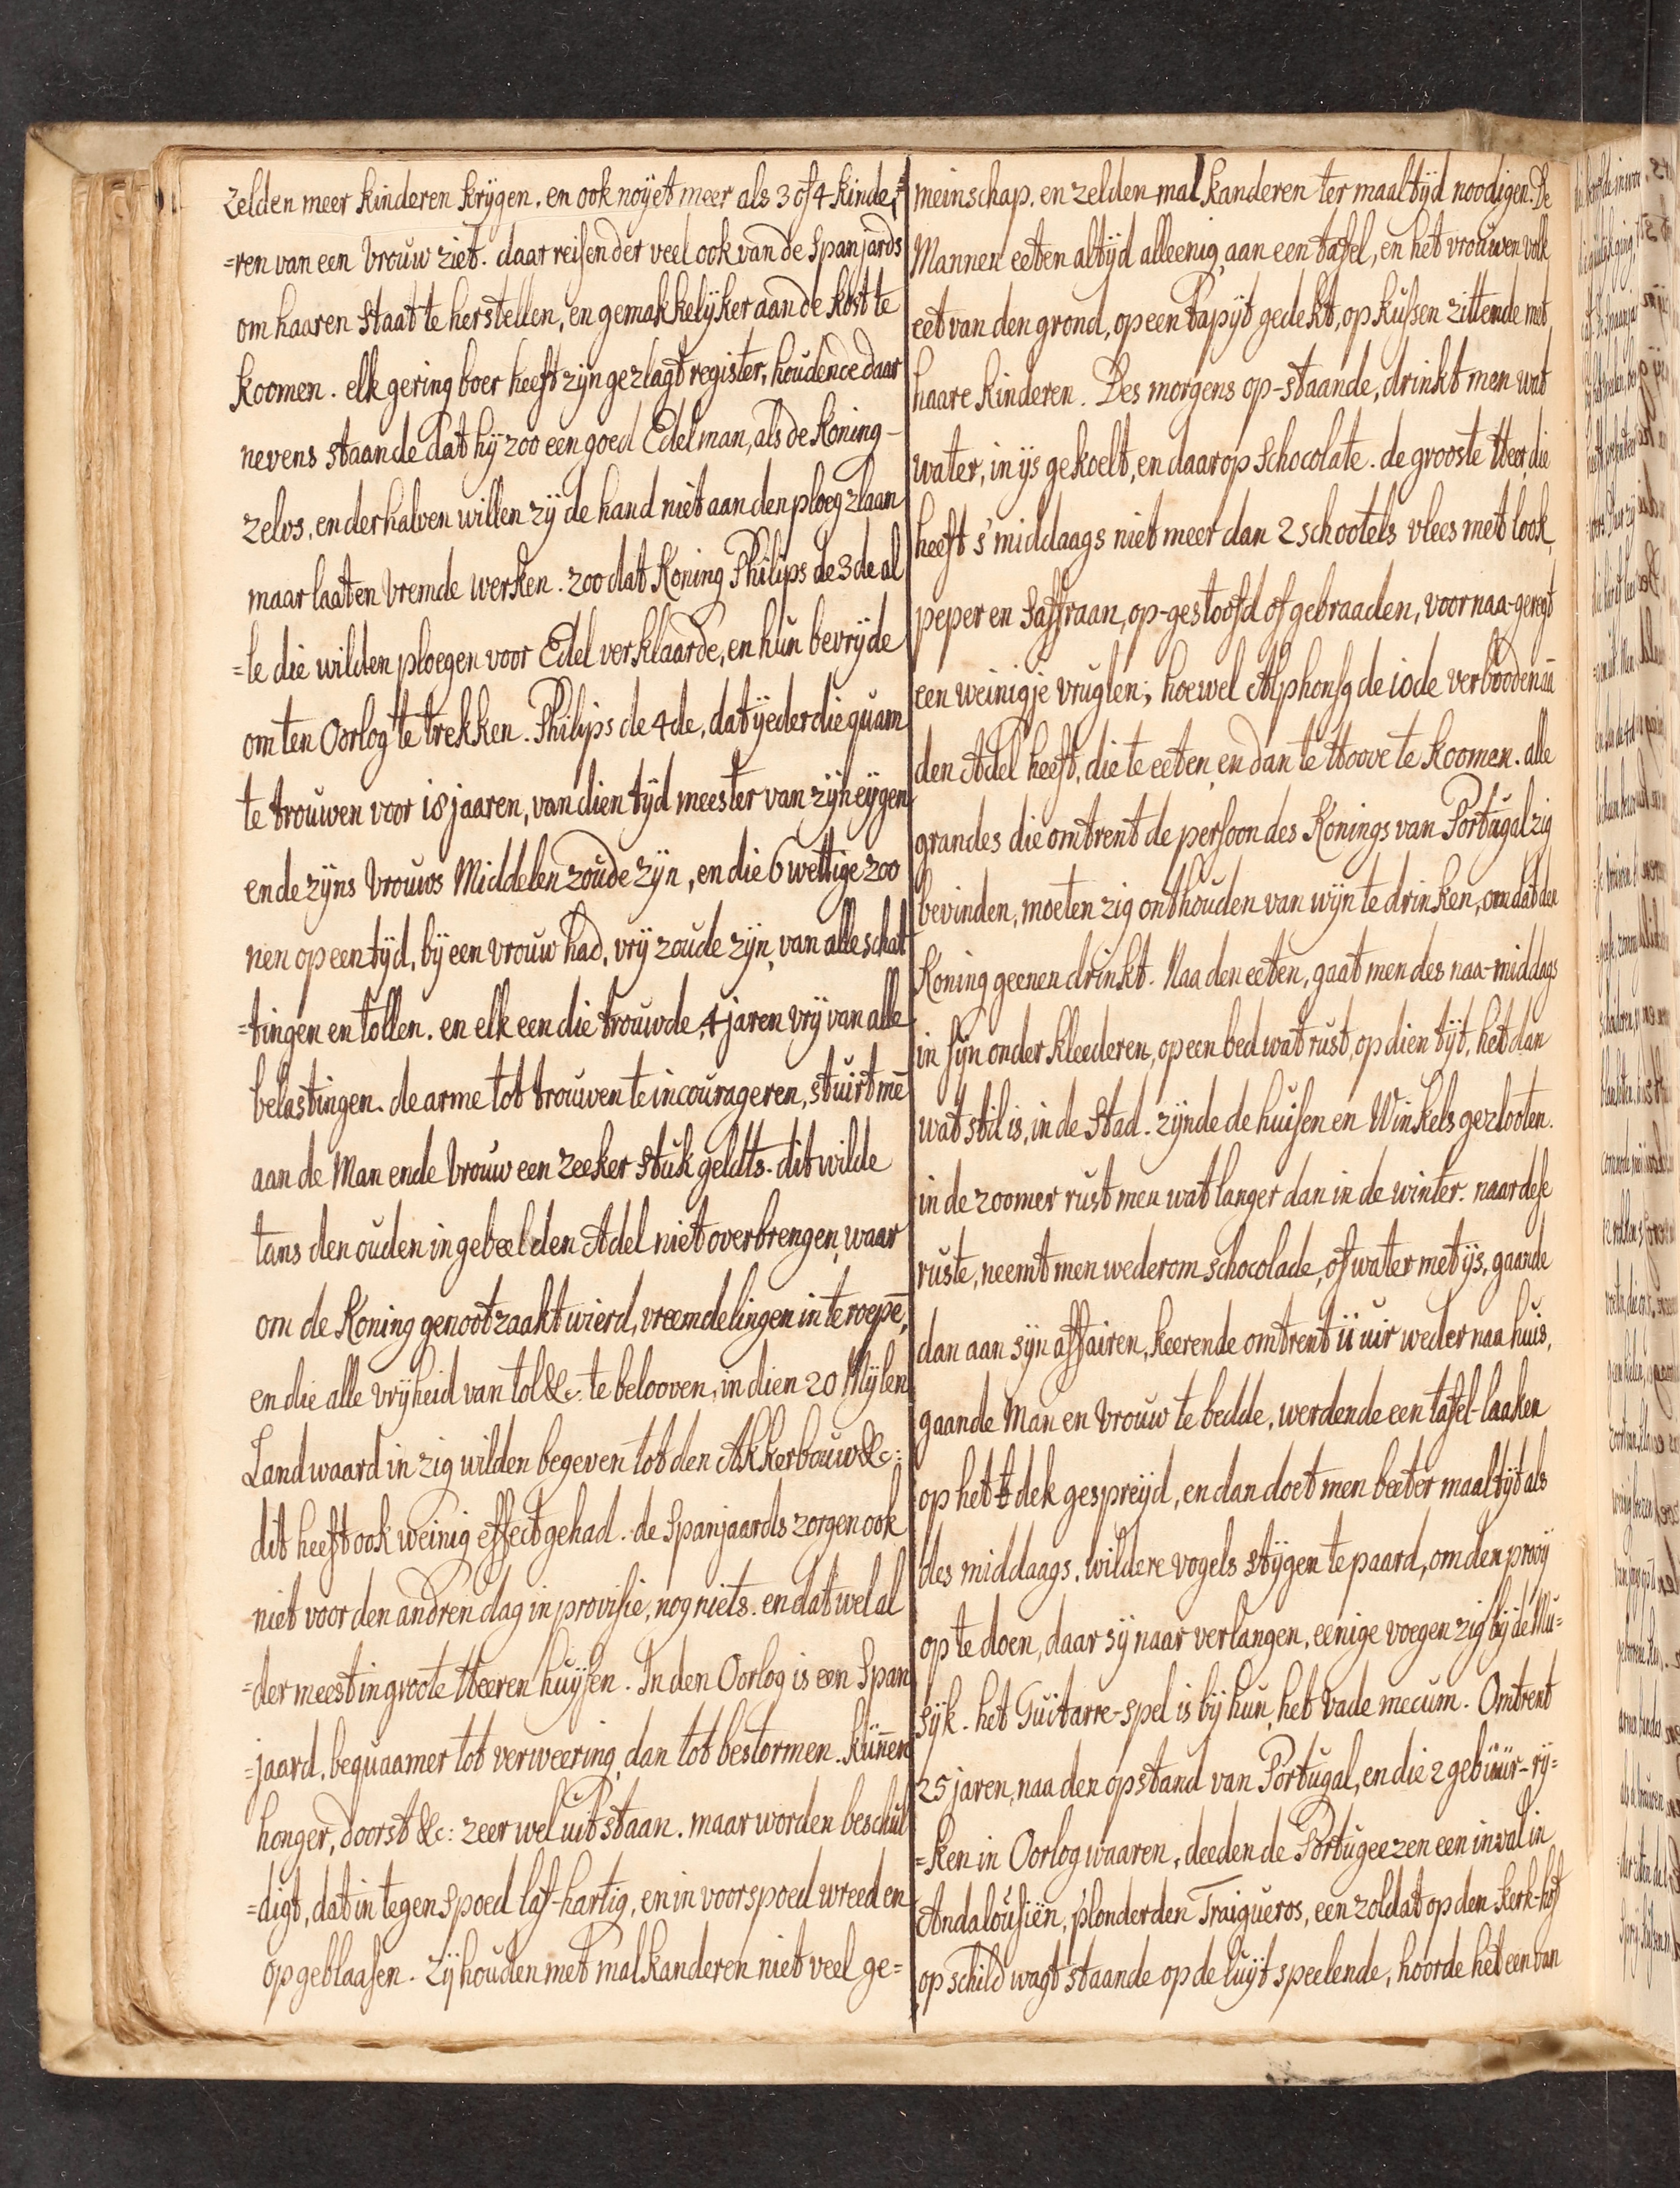 zelden meer kinderen krijgen. en ook noyet meer als 3 of 4 kinde=
=ren van een vrouw ziet. daar reisen der veel ook van de Spanjards
om haaren staat te herstellen, en gemakkelyker aan de kost te
koomen. elk gering boer heeft zijn gezlagt register, houdence daar
nevens staande dat hij zoo een goed Edelman, als de Koning-
zelvs, en derhalven willen zij de hand niet aan den ploeg zlaan
maar laaten vremde werken. zoo dat Koning Philips de 3de al
=le die wilden ploegen voor Edel verklaarde, en hun bevrijde
om ten Oorlog te trekken. Philips de 4de, dat ijeder die quam
te trouwen voor 18 jaaren, van dien tijd meester van zijn eijgen
ende zijns vrouws Middelen zoude zijn, en die 6 wettige zoo
nen op een tijd, bij een vrouw had, vrij zoude zijn, van alle schat
=tingen en tollen. en elk een die trouwde, 4 jaren vrij van alle
belastingen. de arme tot trouwen te incourageren, stuirt mē
aan de Man ende vrouw een zeeker stuk geldts. dit wilde
tans den ouden ingebeelden Adel niet overbrengen, waar
om de Koning genootzaakt wierd, vreemdelingen in te roepē,
en die alle vrijheid van tol &c. te belooven, in dien 20 Mijlen
Landwaard in zig wilden begeven tot den Akkerbouw &c:
dit heeft ook weinig effect gehad. de Spanjaards zorgen ook
niet voor den andren dag in provisie, nog niets. en dat wel al
=der meest in groote Heeren huijsen. In den Oorlog is een Span
=jaard, bequaamer tot verweering, dan tot bestormen. kuñen
honger, doorst &c: zeer wel uitstaan. maar worden beschul
=digt, dat in tegenspoed laf-hartig, en in voorspoed wreed en
opgeblaasen. Zij houden met malkanderen niet veel ge=
meinschap. en zelden malkanderen ter maaltijd noodigen. De
Mannen eeten altijd alleenig, aan een tafel, en het vrouwen volk
eet van den grond, op een tapijt gedekt, op kussen zittende met
haare kinderen. Des morgens op-staande, drinkt men wat
water, in ijs gekoelt, en daar op Schocolate. de grooste Heer, die
heeft s' middaags niet meer dan 2 schootels vlees met look,
peper en Saffraan, op-gestoofd of gebraaden, voor naa-geregt
een weinigje vrugten; hoewel Alphonsg de 10de verbooden aā
den Adel heeft, die te eeten, en dan te Hoove te koomen. alle
grandes die omtrent de persoon des Konings van Portugal zig
bevinden, moeten zig onthouden van wijn te drinken, om dat den
Koning geenen drinkt. Naa den eeten, gaat men des naa-middags
in sijn onder kleederen, op een bed wat rust, op dien tijt, het dan
wat stil is, in de Stad. zijnde de huisen en Winkels gezlooten.
in de zoomer rust men wat langer dan in de winter. naar dese
ruste, neemt men wederom schocolade, of water met ijs, gaande
dan aan sijn affairen, keerende omtrent 11 uir weder naa huis,
gaande Man en Vrouw te bedde, werdende een tafel-laaken
op het dek gespreijd, en dan doet men beeter maaltijt als
des middaags. wildere vogels stijgen te paard, om den prooij
op te doen, daar sij naar verlangen, eenige voegen zig bij de Mu=
sijk. het Guitarre-spel is bij hun, het vade mecum. Omtrent
25 jaren, naa den opstand van Portugal, en die 2 gebuur-rij=
=ken in Oorlog waaren, deeden de Portugeezen een inval in
Andalousiën, plonderden Traigueros, een zoldat op den Kerk-hof
op schild wagt staande op de luijt speelende, hoorde het een van